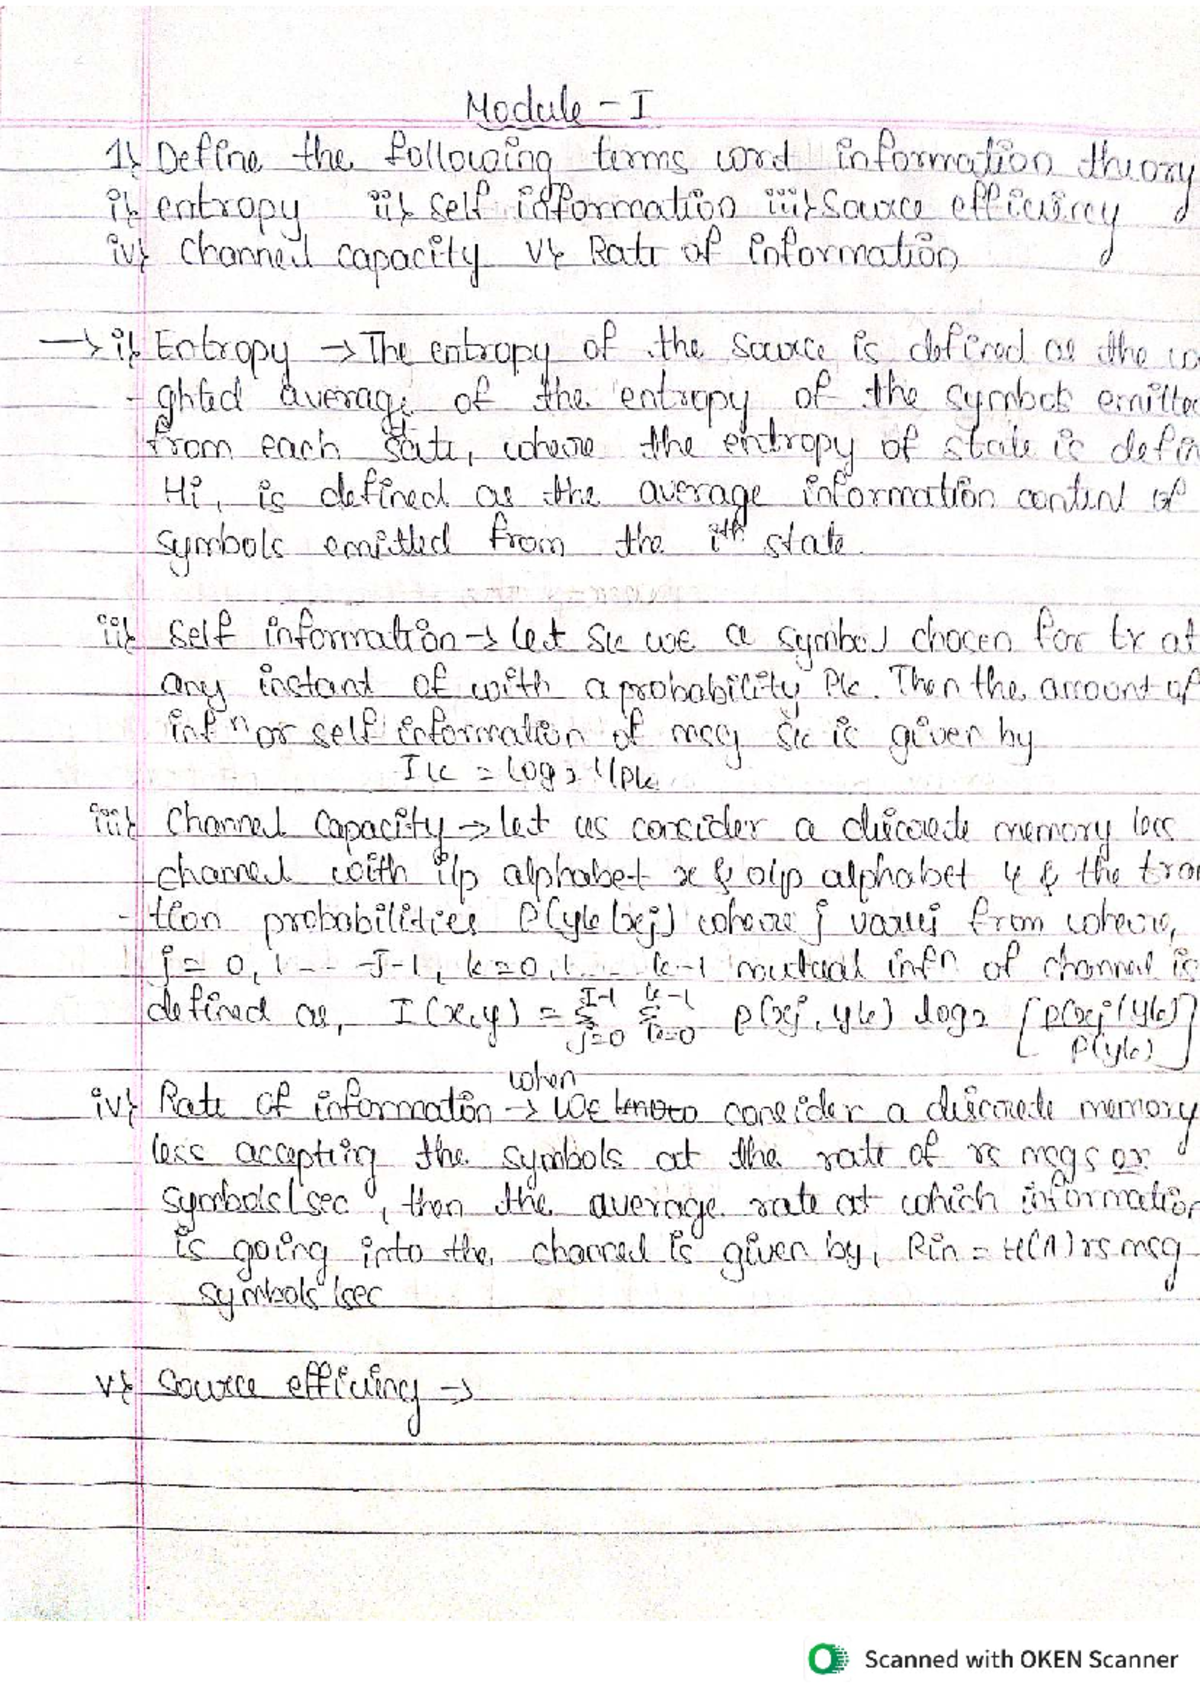 Module - I
1} Define the following terms word information theory
i} entropy ii} Self information iii} Source efficiency
iv} Channel capacity v} Rate of information
→ i} Entropy → The entropy of the source is defined as the
ghted average of the entropy of the symbols emitted
from each sate, where the entropy of state is defin
Hi, is defined as the average information content of
symbols emitted from the ith state.
ii} Self information → let Sk we a symbol chosen for tx at
any instant of with a probability Pk. Then the amount of
infn or self information of msg Sk is given by
Ik = log2 1/Pk
iii} Channel Capacity → let us consider a discrete memory less
channel with i/p alphabet x & o/p alphabet y & the tran
- tion probabilities P(yk/xj) where j varies from where,
j = 0, 1 -- J-1, k = 0, 1 .. k-1 mutual infn of channel is
defined as, I(x,y) = Σ j=0 J-1 Σ k=0 k-1 p(xj, yk) log2 [p(xj/yk) / P(yk)]
iv} Rate of information → when we consider a discrete memory
less accepting the symbols at the rate of rs msgs or
symbols/sec, then the average rate at which information
is going into the channel is given by, Rin = H(A) rs msg
symbols/sec
v} Source efficiency →
Scanned with OKEN Scanner